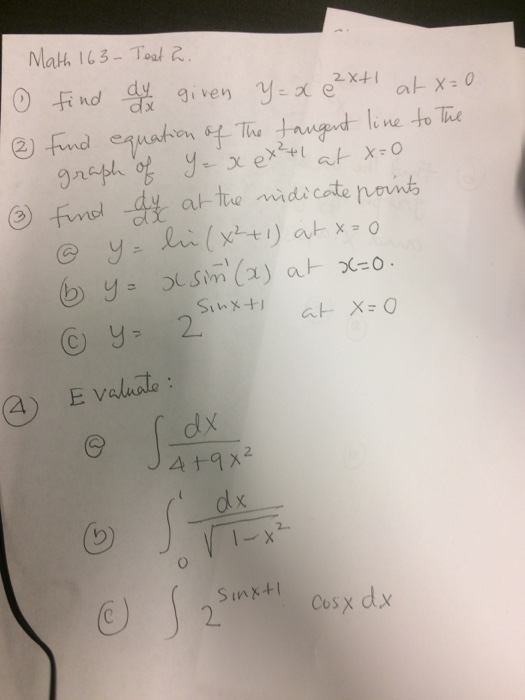 Math 163 - Test 2.
① Find dy/dx given y = x e^{2x+1} at x = 0
② Find equation of the tangent line to the
graph of y = x e^{x²+1} at x = 0
③ Find dy/dx at the indicate points
ⓐ y = ln(x²+1) at x = 0
ⓑ y = x sin⁻¹(x) at x=0.
ⓒ y = 2^{sinx+1} at x = 0
④ Evaluate:
ⓐ ∫ dx/(4+9x²)
ⓑ ∫₀¹ dx/√(1-x²)
ⓒ ∫ 2^{sinx+1} cosx dx